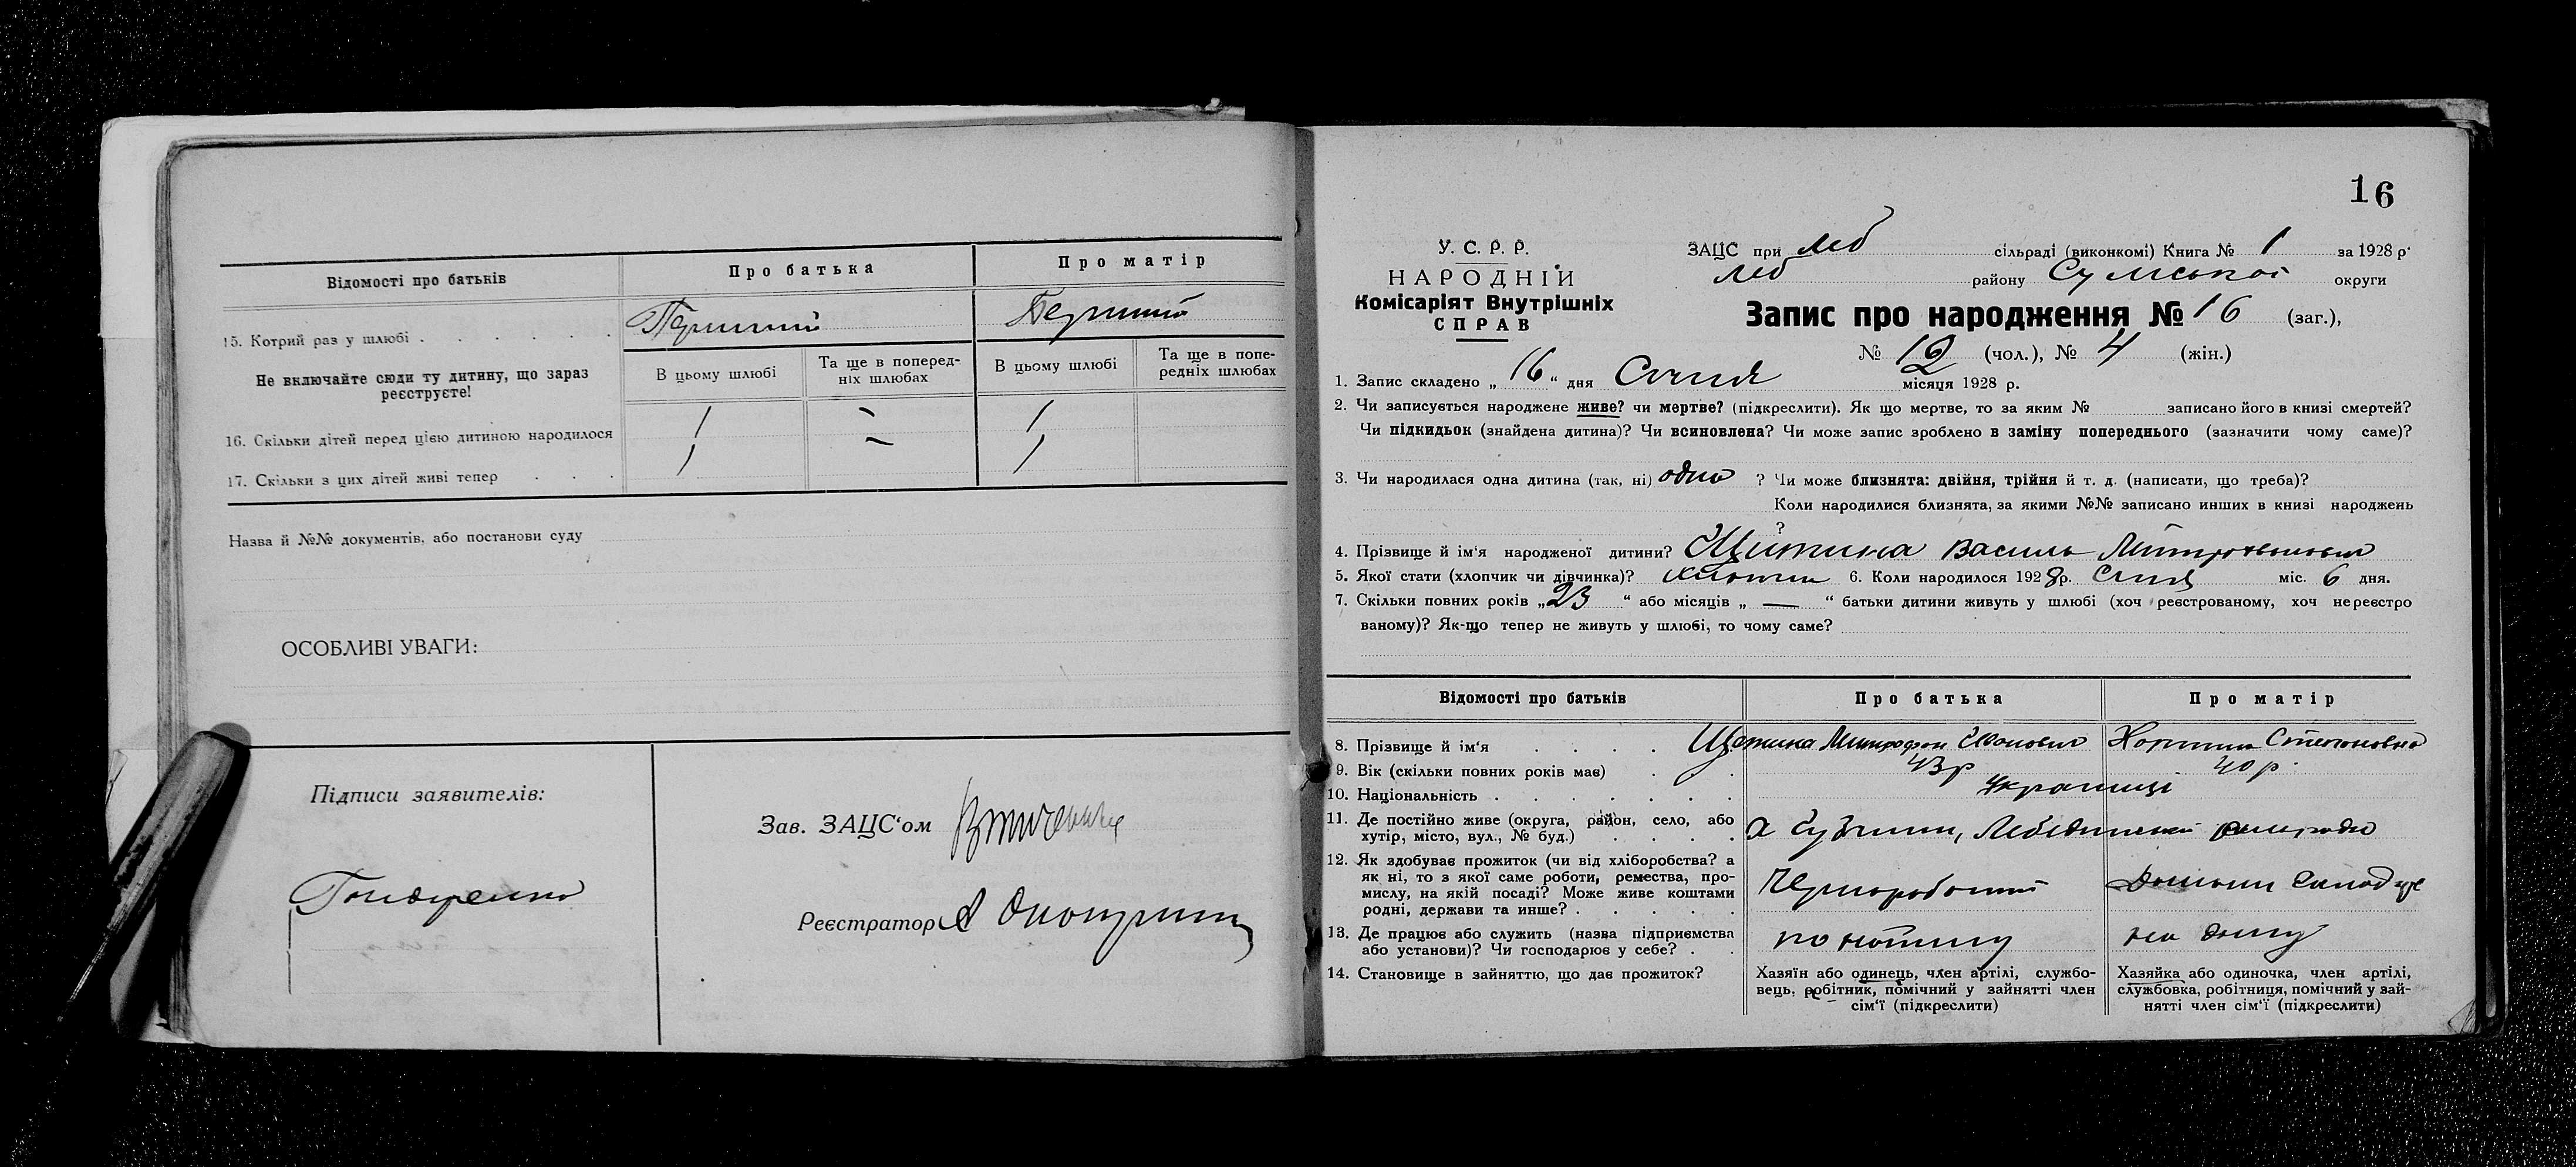 Відомості про батьків
Про батька
Про матір
15. Котрий раз у шлюбі . . . . . .
Перший
Перший
Не включайте сюди ту дитину, що зараз реєструєте!
В цьому шлюбі
Та ще в поперед-
ніх шлюбах
В цьому шлюбі
Та ще в попе-
редніх шлюбах
16. Скільки дітей перед цією дитиною народилося
1
-
1
17. Скільки з цих дітей живі тепер . . .
1
-
1
Назва й №№ документів, або постанови суду
ОСОБЛИВІ УВАГИ:
Підписи заявителів:
Гончаренко
Зав. ЗАЦС'ом
Реєстратор
16
У. С. Р. Р.
НАРОДНІЙ
Комісаріят Внутрішніх
СПРАВ
ЗАЦС при Леб сільраді (виконкомі) Книга № 1 за 1928 р.
Леб району Сумської округи
Запис про народження № 16 (заг.),
№ 12 (чол.), № 4 (жін.)
1. Запис складено „16“ дня Січня місяця 1928 р.
2. Чи записується народжене живе? чи мертве? (підкреслити). Як що мертве, то за яким № записано його в книзі смертей?
Чи підкидьок (знайдена дитина)? Чи всиновлена? Чи може запис зроблено в заміну попереднього (зазначити чому саме)?
3. Чи народилася одна дитина (так, ні) одна ? Чи може близнята: двійня, трійня й т. д. (написати, що треба)?
Коли народилися близнята, за якими №№ записано инших в книзі народжень
?
4. Прізвище й ім'я народженої дитини? Щитина Василь Митрофанович
5. Якої стати (хлопчик чи дівчинка)? хлопчик 6. Коли народилося 1928 р. Січня міс. 6 дня.
7. Скільки повних років „23“ або місяців „—“ батьки дитини живуть у шлюбі (хоч реєстрованому, хоч нереєстро
ваному)? Як-що тепер не живуть у шлюбі, то чому саме?
Відомості про батьків
Про батька
Про матір
8. Прізвище й ім'я . . . .
Щетина Митрофан Іванович
Степановна
9. Вік (скільки повних років має) . .
43 р
40 р.
10. Національність . . . . . . .
Українці
11. Де постійно живе (округа, район, село, або
хутір, місто, вул., № буд.) . . . .
Лебединської
12. Як здобуває прожиток (чи від хліборобства? а
як ні, то з якої саме роботи, ремества, про-
мислу, на якій посаді? Може живе коштами
родні, держави та инше? . . . . .
Чорноробочий
13. Де працює або служить (назва підприємства
або установи)? Чи господарює у себе? . .
по найму
на дому
14. Становище в зайняттю, що дає прожиток?
Хазяїн або одинець, член артілі, службо-
вець, робітник, помічний у зайнятті член
сім'ї (підкреслити)
Хазяйка або одиночка, член артілі,
службовка, робітниця, помічний у зай-
нятті член сім'ї (підкреслити)